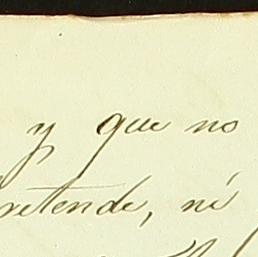 y que no
retende, ni